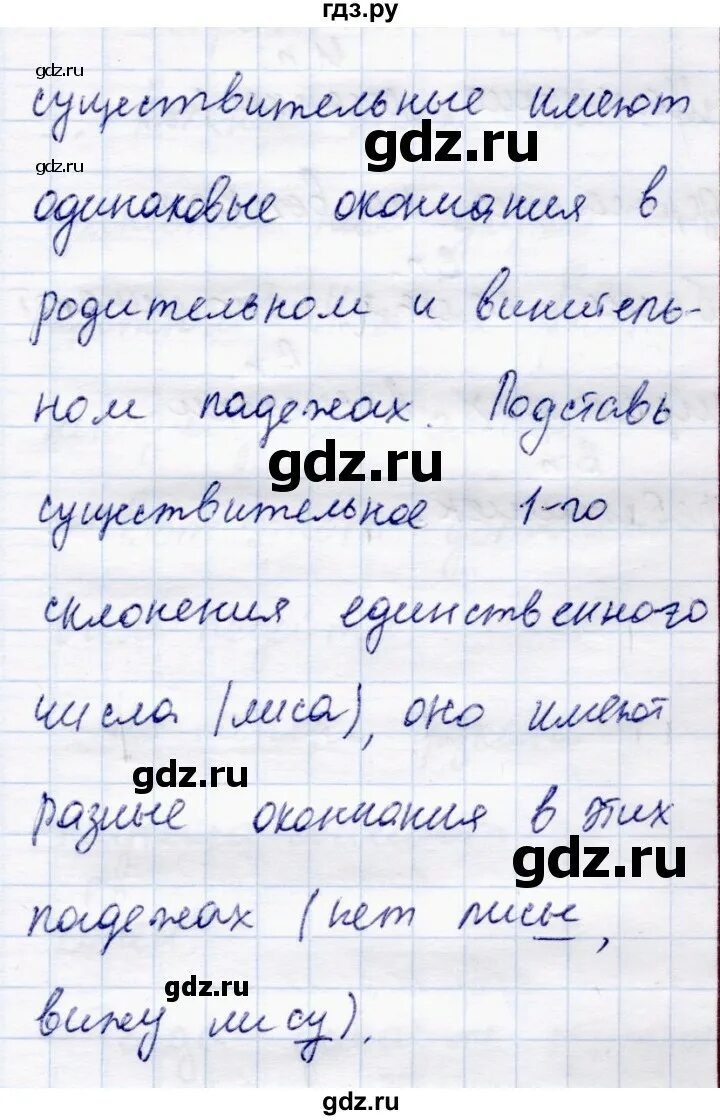 гдз.ру
gdz.ru
существительные имеют
gdz.ru
gdz.ru
одинаковые окончания в
родительном и винитель-
ном падежах. Подставь
gdz.ru
существительное 1-го
склонения единственного
числа (лиса), оно имеют
gdz.ru
разные окончания в этих
gdz.ru
падежах (нет лисы,
gdz.ru
вижу лису).
gdz.ru